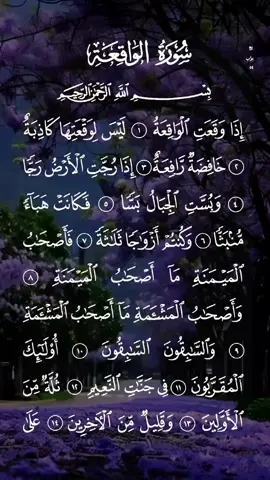 سُورَةُ الوَاقِعَةِ
بِسْمِ ٱللَّهِ ٱلرَّحْمَٰنِ ٱلرَّحِيمِ
إِذَا وَقَعَتِ ٱلْوَاقِعَةُ ١ لَيْسَ لِوَقْعَتِهَا كَاذِبَةٌ
٢ خَافِضَةٌ رَّافِعَةٌ ٣ إِذَا رُجَّتِ ٱلْأَرْضُ رَجًّا
٤ وَبُسَّتِ ٱلْجِبَالُ بَسًّا ٥ فَكَانَتْ هَبَآءً
مُّنۢبَثًّا ٦ وَكُنتُمْ أَزْوَٰجًا ثَلَٰثَةً ٧ فَأَصْحَٰبُ
ٱلْمَيْمَنَةِ مَآ أَصْحَٰبُ ٱلْمَيْمَنَةِ ٨
وَأَصْحَٰبُ ٱلْمَشْـَٔمَةِ مَآ أَصْحَٰبُ ٱلْمَشْـَٔمَةِ
٩ وَٱلسَّٰبِقُونَ ٱلسَّٰبِقُونَ ١٠ أُو۟لَٰٓئِكَ
ٱلْمُقَرَّبُونَ ١١ فِى جَنَّٰتِ ٱلنَّعِيمِ ١٢ ثُلَّةٌ مِّنَ
ٱلْأَوَّلِينَ ١٣ وَقَلِيلٌ مِّنَ ٱلْءَاخِرِينَ ١٤ عَلَىٰ